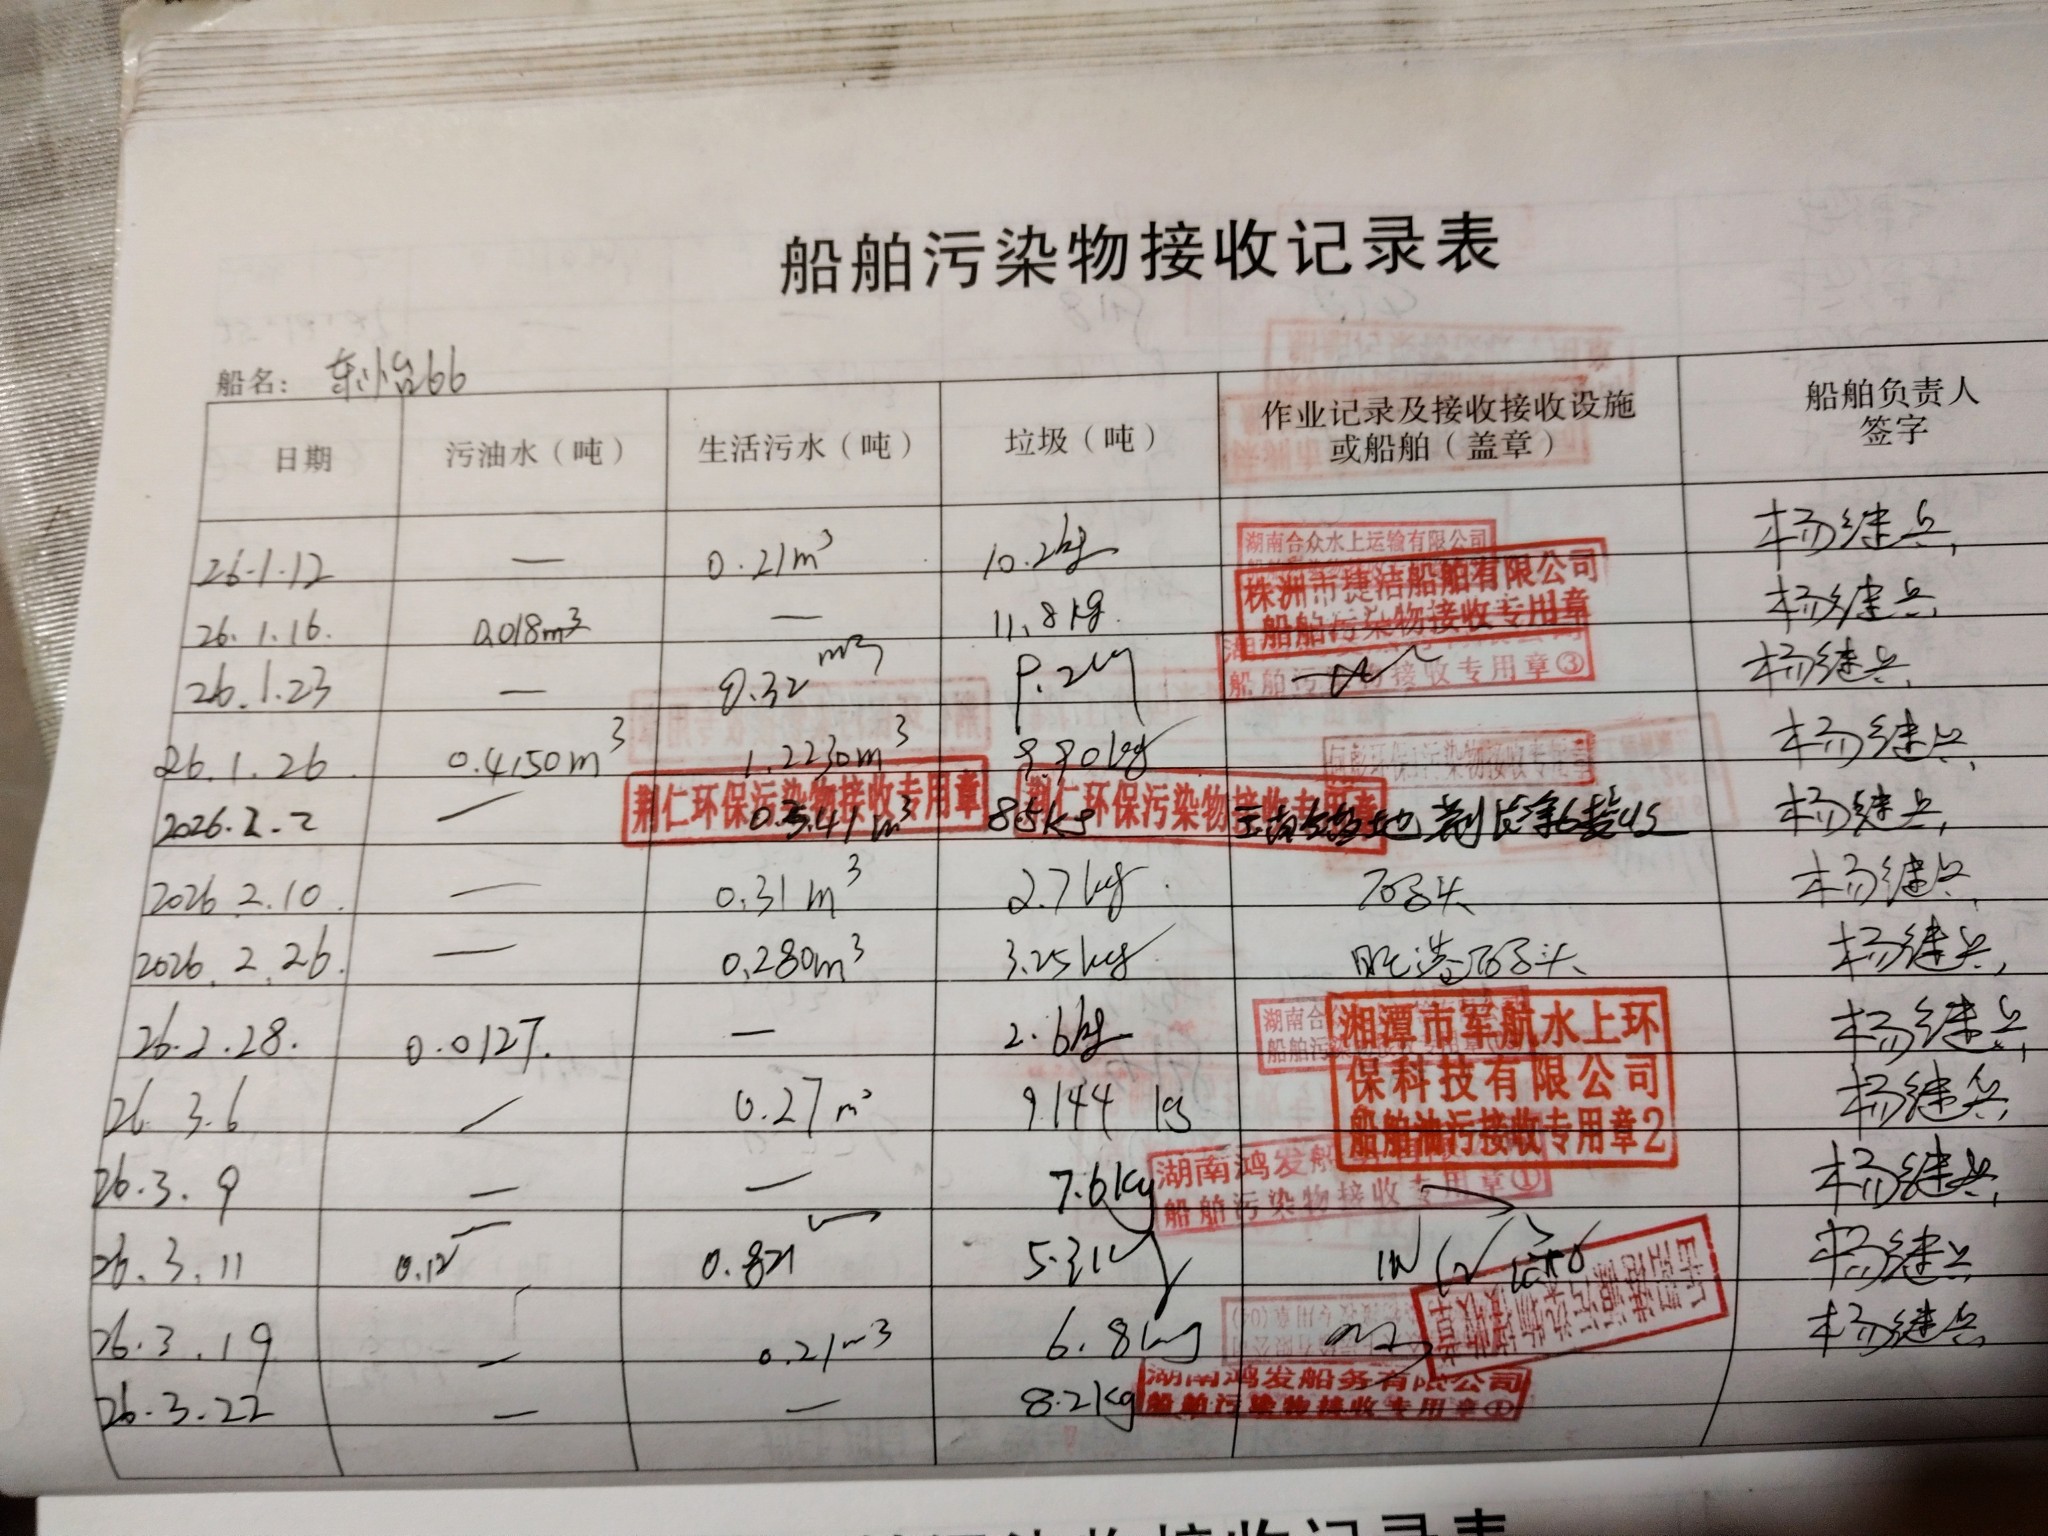 船舶污染物接收记录表
船名：东冶66
日期 污油水（吨） 生活污水（吨） 垃圾（吨） 作业记录及接收接收设施或船舶（盖章） 船舶负责人签字
26.1.12 — 0.21m³ 10.2kg 湖南合众水上运输有限公司 杨继兵
26.1.16. 0.018m³ — 11.8kg 株洲市捷洁船舶有限公司 船舶污染物接收专用章 杨继兵
26.1.23 — 0.32 m³ 9.2kg 船舶污染物接收专用章③ 杨继兵
26.1.26 0.4150m³ 1.2230m³ 9.90kg 杨继兵
2026.2.2 — 0.341m³ 85kg 荆仁环保污染物接收专用章 荆仁环保污染物接收专用章 杨继兵
2026.2.10. — 0.31m³ 2.7kg 码头 杨继兵
2026.2.26. — 0.280m³ 3.25kg 码头 杨继兵
26.2.28. 0.0127. — 2.6kg 湘潭市军航水上环保科技有限公司 船舶油污接收专用章2 杨继兵
26 3.6 — 0.27m³ 9.144 kg 杨继兵
26.3.9 — — 7.6kg 湖南鸿发船 船舶污染物接收专用章① 杨继兵
26.3.11 0.12 0.821 5.31 杨继兵
26.3.19 — 0.21m³ 6.8kg 杨继兵
26.3.22 — — 8.2kg 湖南鸿发船务有限公司 船舶污染物接收专用章①